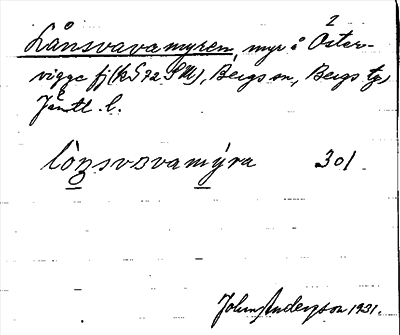 2
Lånsvavamyren, myr å Öster-
vigge fj (k 572 SM), Bergs sn, Bergs tg,
Jämtl. l.
lòŋsvɔvamýra 301
John Anderzson 1931.